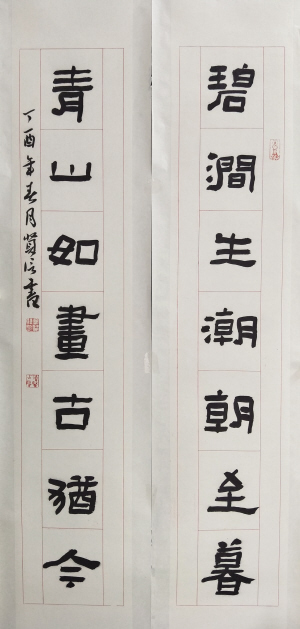 碧澗生潮朝至暮
青山如畫古猶今
丁酉年春月賢信書